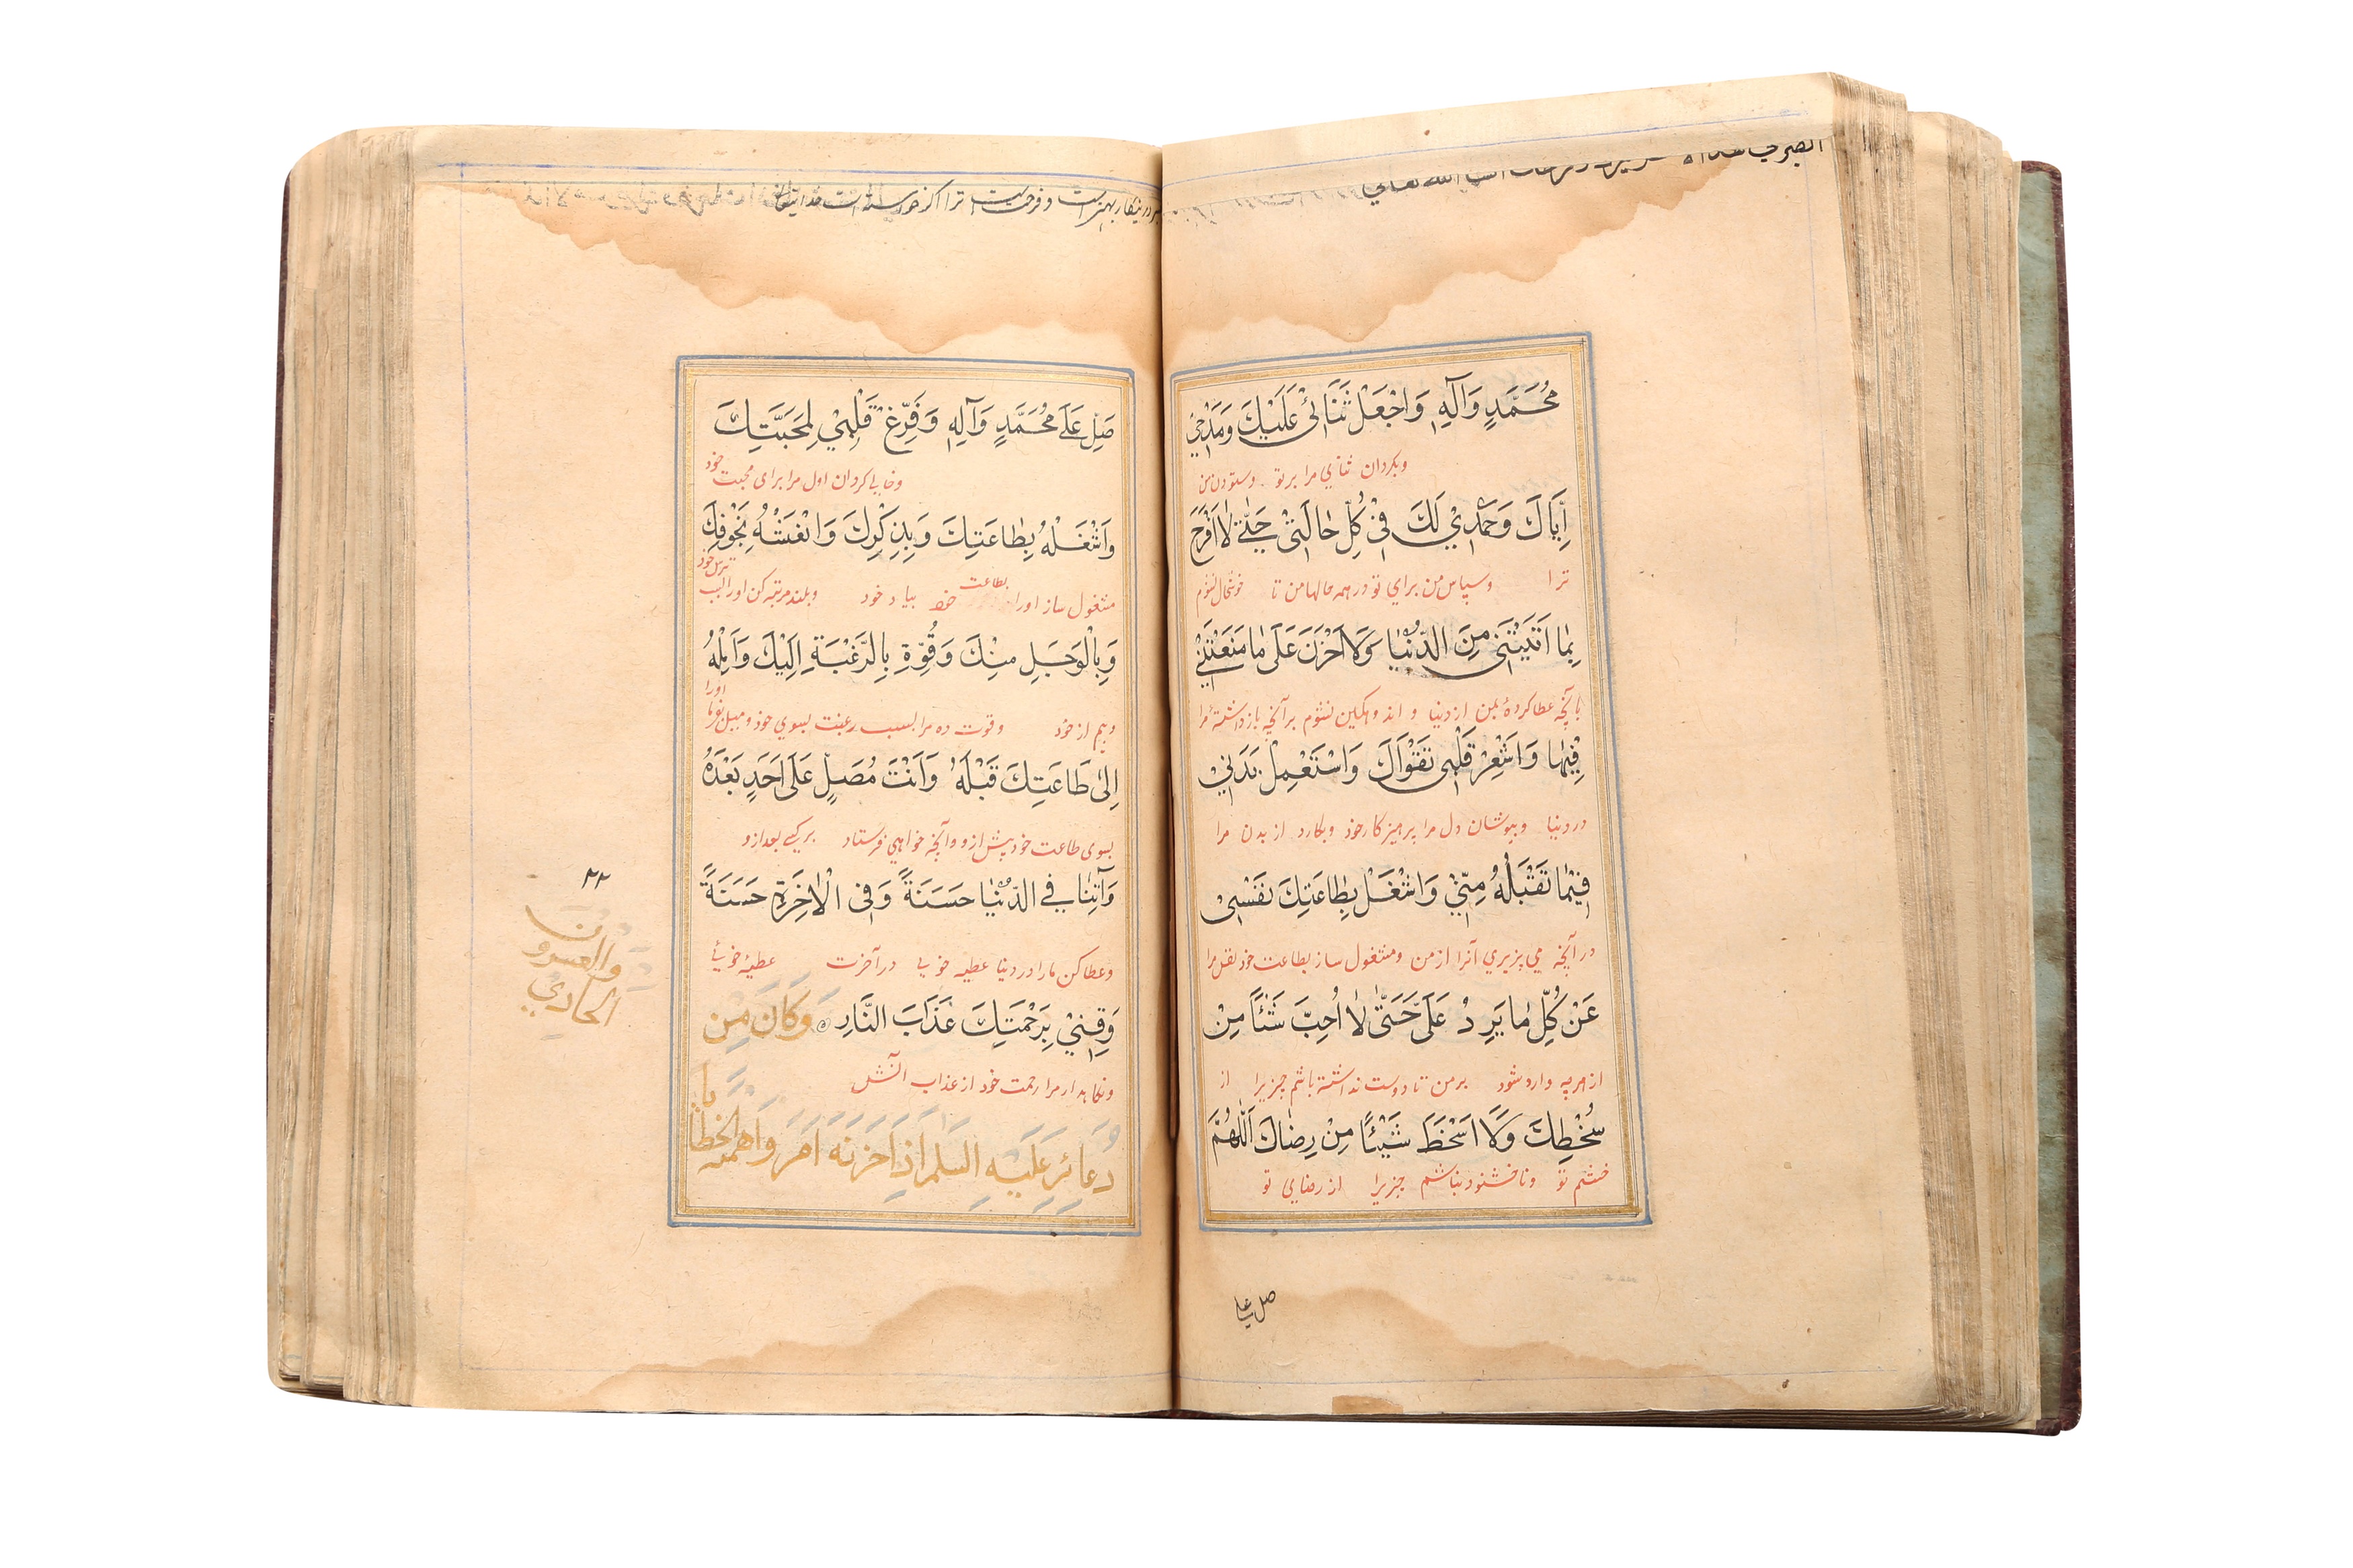 مُحَمَّدٍ وَآلِهِ وَاجْعَلْ ثَنَائِي عَلَيْكَ وَمَدْحِي
وبکردان ثنایي مرا بر تو وستودن من
اِيَّاكَ وَحَمْدِي لَكَ فِي كُلِّ حَالَتِيْ حَتّٰى لَا اَفْرَحَ
ترا وسپاس من براي تو در همه حالها من تا خوشحال نشوم
بِمَا اٰتَيْتَنِى مِنَ الدُّنْيَا وَلَا اَحْزَنَ عَلَى مَا مَنَعْتَنِيْ
بآنچه عطا کردۀ بمن از دنیا و اندوهکین نشوم بر آنچه بازداشتۀ مرا
فِيْهَا وَاَشْعِرْ قَلْبِى تَقْوَاكَ وَاسْتَعْمِلْ بَدَنِيْ
در دنیا وبپوشان دل مرا پرهیزکار خود وبکار د از بدن مرا
فِيْمَا تَقْبَلُهُ مِنِّيْ وَاشْغَلْ بِطَاعَتِكَ نَفْسِى
در آنچه مي پزیري آنرا از من ومشغول ساز بطاعت خود نفس مرا
عَنْ كُلِّ مَا يَرِدُ عَلَىَّ حَتّٰى لَا اُحِبَّ شَيْئًا مِنْ
از هر چه وارد شود بر من تا دوست نداشته باشم چیزیرا از
سُخْطِكَ وَلَا اَسْخَطَ شَيْئًا مِنْ رِضَاكَ اَللّٰهُمَّ
خشم تو وناخشنود نباشم چیزیرا از رضایي تو
صل علی
صَلِّ عَلَى مُحَمَّدٍ وَآلِهِ وَفَرِّغْ قَلْبِيْ لِمَحَبَّتِكَ
وخالی کردان اول مرا برای محبت خود
وَاشْغَلْهُ بِطَاعَتِكَ وَبِذِكْرِكَ وَانْعَشْهُ بِخَوْفِكَ
مشغول ساز اورا بطاعت خود بیاد خود وبلند مرتبه کن اورا بسبب ترس خود
وَبِالْوَجَلِ مِنْكَ وَقَوِّهِ بِالرَّغْبَةِ اِلَيْكَ وَاَمِلْهُ
وبیم از خود وقوت ده مرا بسبب رغبت بسوي خود ومیل بفرما اورا
اِلىٰ طَاعَتِكَ قَبْلَهُ وَاَنْتَ مُصَلٍّ عَلَى اَحَدٍ بَعْدَهُ
بسوی طاعت خود پیش ازو وآنچه خواهي فرستاد بر کسی بعد ازو
وَآتِنَا فِي الدُّنْيَا حَسَنَةً وَفِى الْاٰخِرَةِ حَسَنَةً
وعطا کن مارا در دنیا عطیه خوبی در آخرت عطیۀ خوبی
وَقِنِيْ بِرَحْمَتِكَ عَذَابَ النَّارِ وَكَانَ مِنْ
ونکاهدار مرا رحمت خود از عذاب آتش
دعائه عليه السلم اذا احزنه امر واهمته الخطايا
۲۲
والعشرون
الحادي